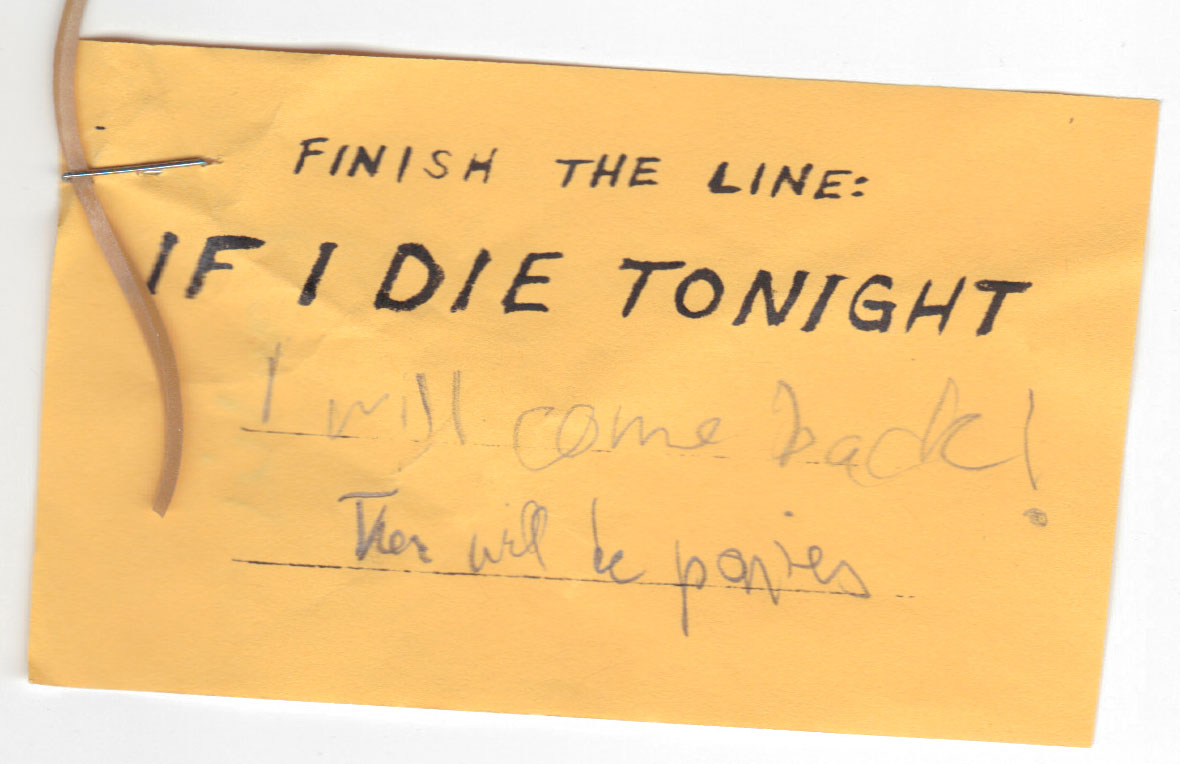 FINISH THE LINE:
IF I DIE TONIGHT
I will come back!
will be